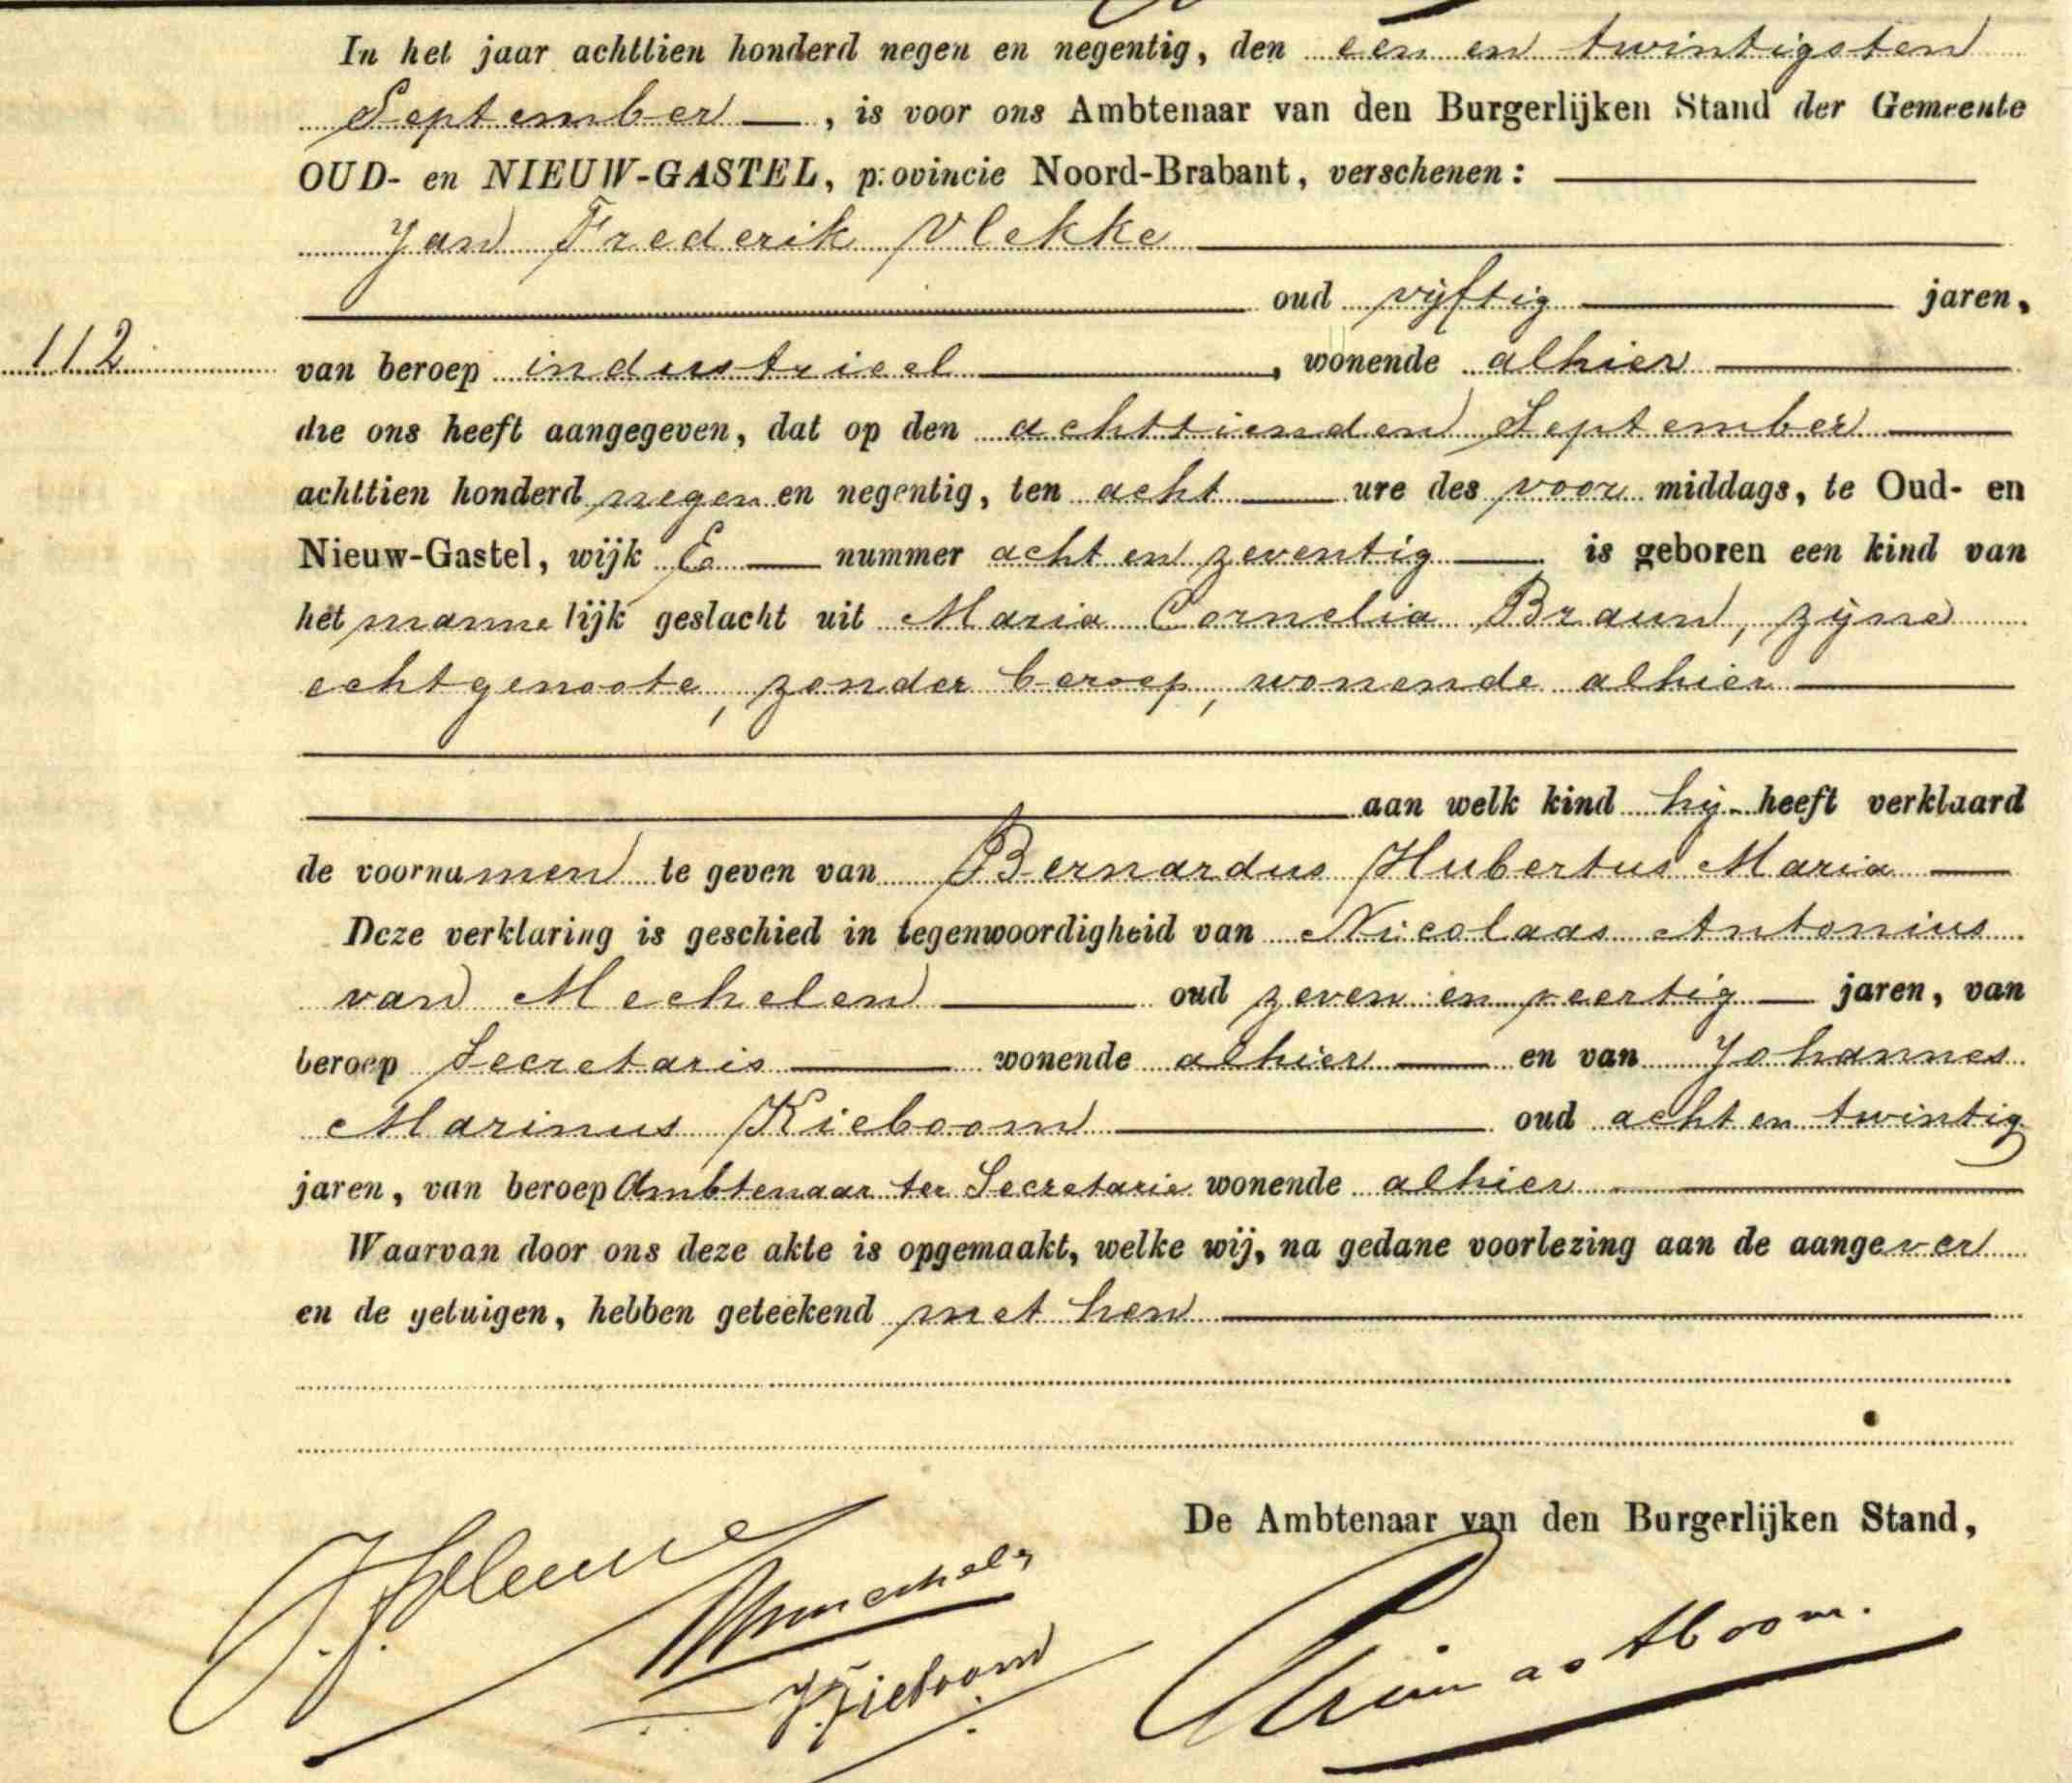 In het jaar achttien honderd negen en negentig, den een en twintigsten
September, is voor ons Ambtenaar van den Burgerlijken Stand der Gemeente
OUD- en NIEUW-GASTEL, provincie Noord-Brabant, verschenen:
Jan Frederik Vlekke
oud vijftig jaren,
112
van beroep industrieel, wonende alhier
die ons heeft aangegeven, dat op den achttienden September
achttien honderd negen en negentig, ten acht ure des voor middags, te Oud- en
Nieuw-Gastel, wijk E nummer acht en zeventig is geboren een kind van
het mannelijk geslacht uit Maria Cornelia Braun, zijne
echtgenoote, zonder beroep, wonende alhier
aan welk kind hij heeft verklaard
de voornamen te geven van Bernardus Hubertus Maria
Deze verklaring is geschied in tegenwoordigheid van Nicolaas Antonius
van Mechelen oud zeven en veertig jaren, van
beroep Secretaris wonende alhier en van Johannes
Marinus Kieboom oud acht en twintig
jaren, van beroep Ambtenaar ter Secretarie wonende alhier
Waarvan door ons deze akte is opgemaakt, welke wij, na gedane voorlezing aan de aangever
en de getuigen, hebben geteekend met hen
De Ambtenaar van den Burgerlijken Stand,
Kieboom